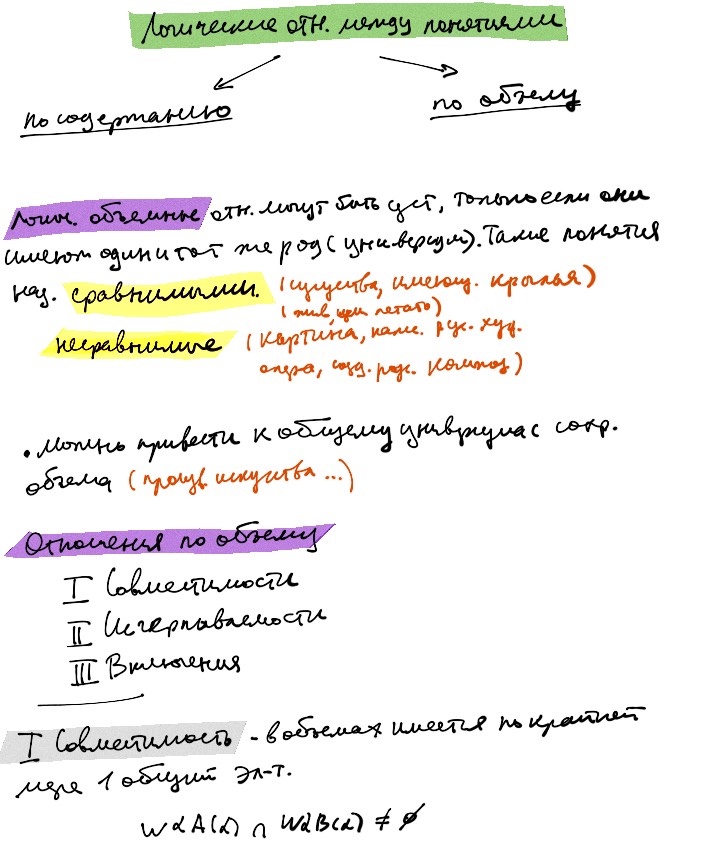 Логические отн. между понятиями
по содержанию
по объему
Логич. объемные отн. могут быть уст, только если они
имеют один и тот же род (универсум). Такие понятия
наз. сравнимыми. (существа, имеющ. крылья)
(жив, летать)
несравнимые (картина, напис. рук. худ.
опера, созд. рус. композ)
• можно привести к общему универсуму с сохр.
объема (произв. искуства ...)
Отношения по объему
I Совместимости
II Исчерпываемости
III Включения
I Совместимость - в объемах имеется по крайней
мере 1 общий эл-т.
WαA(α) ∩ WαB(α) ≠ ∅